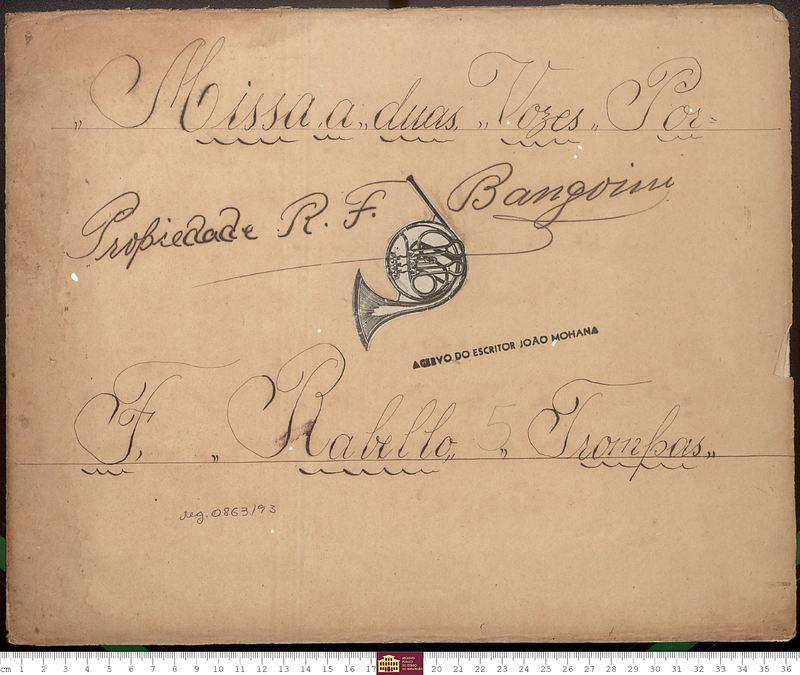 „Missa„ a„ duas„ Vozes„ Por=
Propiedade R. F. Bangoim
ACERVO DO ESCRITOR JOÃO MOHANA
F. „Rabello„ 5 „Trompas„
reg. 0863/93
cm 1 2 3 4 5 6 7 8 9 10 11 12 13 14 15 16 17 20 21 22 23 24 25 26 27 28 29 30 31 32 33 34 35 36